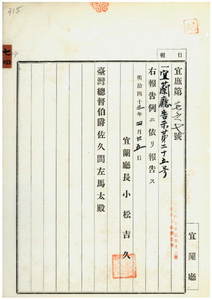 報 日
宜庶第
一宜蘭廳告示第二十五号
右報告例ニ依リ報告ス
明治四十 年 四月 日
宜蘭廳長 小松吉久
臺灣總督伯爵佐久間左馬太殿
宜蘭廳